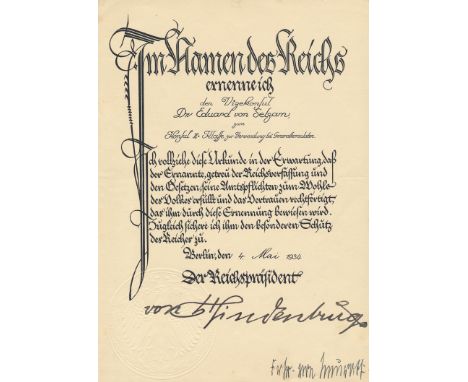 Im Namen des Reichs
ernenne ich
den Vizekonsul
Dr Eduard von Selzam,
zum
Konsul II. Klasse zur Verwendung bei Generalkonsulaten.
Ich vollziehe diese Urkunde in der Erwartung, daß
der Ernannte, getreu der Reichsverfassung und
den Gesetzen, seine Amtspflichten zum Wohle
des Volkes erfüllt und das Vertrauen rechtfertigt,
das ihm durch diese Ernennung bewiesen wird.
Zugleich sichere ich ihm den besonderen Schutz
des Reiches zu.
Berlin, den 4. Mai 1934
Der Reichspräsident
von Hindenburg
Frhr. von Neurath